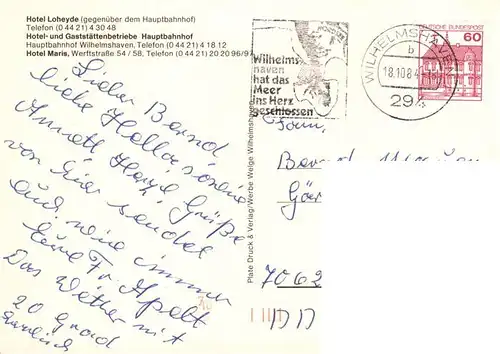 Hotel Loheyde (gegenüber dem Hauptbahnhof)
Telefon (0 44 21) 4 30 48
Hotel- und Gaststättenbetriebe Hauptbahnhof
Hauptbahnhof Wilhelmshaven, Telefon (0 44 21) 4 18 12
Hotel Maris, Werftstraße 54 / 58, Telefon (0 44 21) 20 20 96/97
Lieber Bernd
liebe Hella
Annett Herzl Grüße
von hier sendet
Euch, wie immer
Eure Fr Apelt
Das Wetter ist
20 Grad
herrlich
Plate Druck & Verlag/Werbe Welge Wilhelmshaven
Wilhelms-
haven
hat das
Meer
ins Herz
geschlossen
WILHELMSHAVEN
b
18.10.84
29
DEUTSCHE BUNDESPOST
60
Fam.
Bernd
7062